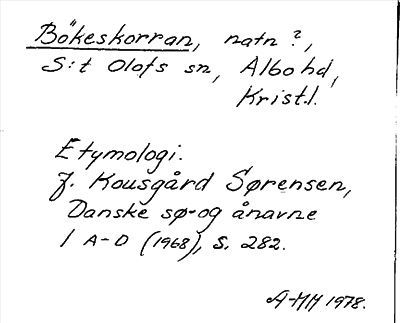 Bökeskorran, natn ?,
S:t Olofs sn, Albo hd,
Krist.l.
Etymologi.
J. Kousgård Sørensen,
Danske sø- og ånavne
1 A-D (1968), s. 282.
A-MH 1978.